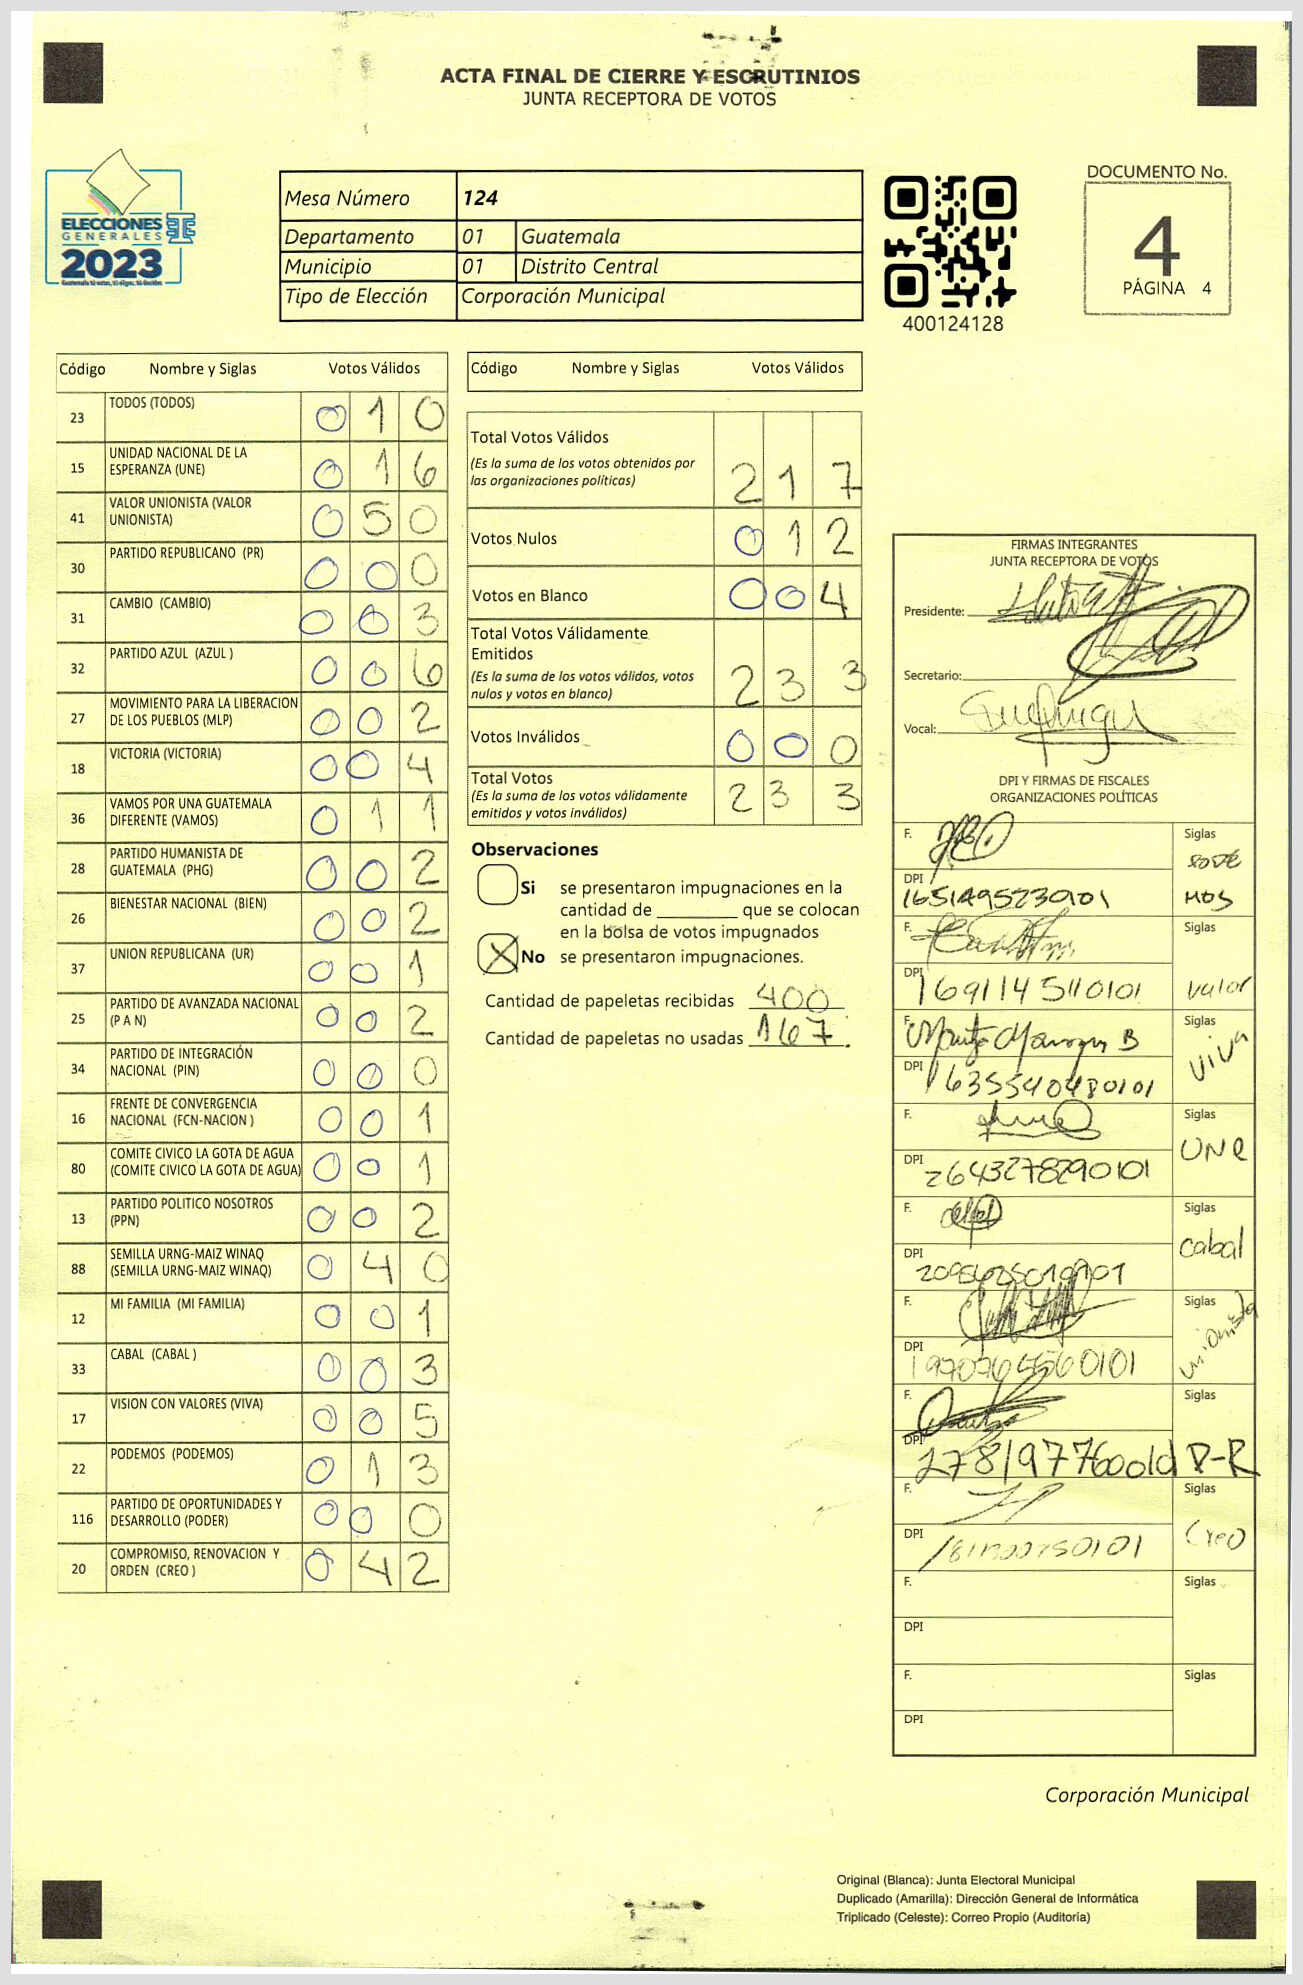 ACTA FINAL DE CIERRE Y ESCRUTINIOS
JUNTA RECEPTORA DE VOTOS
ELECCIONES
GENERALES
2023
Mesa Número 124
Departamento 01 Guatemala
Municipio 01 Distrito Central
Tipo de Elección Corporación Municipal
400124128
DOCUMENTO No.
4
PÁGINA 4
Código Nombre y Siglas Votos Válidos
23 TODOS (TODOS) 0 1 0
15 UNIDAD NACIONAL DE LA ESPERANZA (UNE) 0 1 6
41 VALOR UNIONISTA (VALOR UNIONISTA) 0 5 0
30 PARTIDO REPUBLICANO (PR) 0 0 0
31 CAMBIO (CAMBIO) 0 0 3
32 PARTIDO AZUL (AZUL ) 0 0 6
27 MOVIMIENTO PARA LA LIBERACION DE LOS PUEBLOS (MLP) 0 0 2
18 VICTORIA (VICTORIA) 0 0 4
36 VAMOS POR UNA GUATEMALA DIFERENTE (VAMOS) 0 1 1
28 PARTIDO HUMANISTA DE GUATEMALA (PHG) 0 0 2
26 BIENESTAR NACIONAL (BIEN) 0 0 2
37 UNION REPUBLICANA (UR) 0 0 1
25 PARTIDO DE AVANZADA NACIONAL (P A N) 0 0 2
34 PARTIDO DE INTEGRACIÓN NACIONAL (PIN) 0 0 0
16 FRENTE DE CONVERGENCIA NACIONAL (FCN-NACION ) 0 0 1
80 COMITE CIVICO LA GOTA DE AGUA (COMITE CIVICO LA GOTA DE AGUA) 0 0 1
13 PARTIDO POLITICO NOSOTROS (PPN) 0 0 2
88 SEMILLA URNG-MAIZ WINAQ (SEMILLA URNG-MAIZ WINAQ) 0 4 0
12 MI FAMILIA (MI FAMILIA) 0 0 1
33 CABAL (CABAL ) 0 0 3
17 VISION CON VALORES (VIVA) 0 0 5
22 PODEMOS (PODEMOS) 0 1 3
116 PARTIDO DE OPORTUNIDADES Y DESARROLLO (PODER) 0 0 0
20 COMPROMISO, RENOVACION Y ORDEN (CREO ) 0 4 2
Código Nombre y Siglas Votos Válidos
Total Votos Válidos
(Es la suma de los votos obtenidos por
las organizaciones políticas) 2 1 7
Votos Nulos 0 1 2
Votos en Blanco 0 0 4
Total Votos Válidamente
Emitidos
(Es la suma de los votos válidos, votos
nulos y votos en blanco) 2 3 3
Votos Inválidos 0 0 0
Total Votos
(Es la suma de los votos válidamente
emitidos y votos inválidos) 2 3 3
Observaciones
Si se presentaron impugnaciones en la
cantidad de ________ que se colocan
en la bolsa de votos impugnados
X No se presentaron impugnaciones.
Cantidad de papeletas recibidas 400
Cantidad de papeletas no usadas 167
FIRMAS INTEGRANTES
JUNTA RECEPTORA DE VOTOS
Presidente:
Secretario:
Vocal:
DPI Y FIRMAS DE FISCALES
ORGANIZACIONES POLÍTICAS
F. Siglas
DPI 1651495230101
MOS
F. Siglas
DPI 1691145110101 valor
F. Siglas
DPI 1635540480101 VIVA
F. Siglas
DPI 2643278290101 UNE
F. Siglas
DPI cabal
F. Siglas
DPI unionista
F. Siglas
DPI P-R
F. Siglas
DPI Creo
F. Siglas
DPI
F. Siglas
DPI
Corporación Municipal
Original (Blanca): Junta Electoral Municipal
Duplicado (Amarilla): Dirección General de Informática
Triplicado (Celeste): Correo Propio (Auditoría)